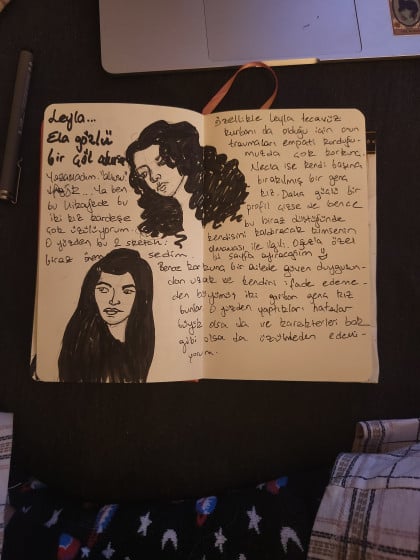 Leyla...
Ela gözlü
bir çöl
Ya ben
bu hikayede bu
iki kız kardeşe
çok üzülüyorum...
O yüzden bu 2 sketch
biraz
Özellikle Leyla tecavüz
kurbanı da olduğu için onun
travmaları empati kurduğu-
muzda çok korkunç.
Necla ise kendi başına
bırakılmış bir genç
kız. Daha güçlü bir
profil çizse de bence
bu biraz düştüğünde
kendisini kaldıracak kimsenin
olmaması ile ilgili. Ona özel
bi sayfa ayıracağım
Bence korkunç bir ailede güven duygusun-
dan uzak ve kendini ifade edeme-
den büyümüş iki gariban genç kız
bunlar. O yüzden yaptıkları hatalar
büyük olsa da ve karakterleri bok
gibi olsa da üzülmeden edemi-
yorum.